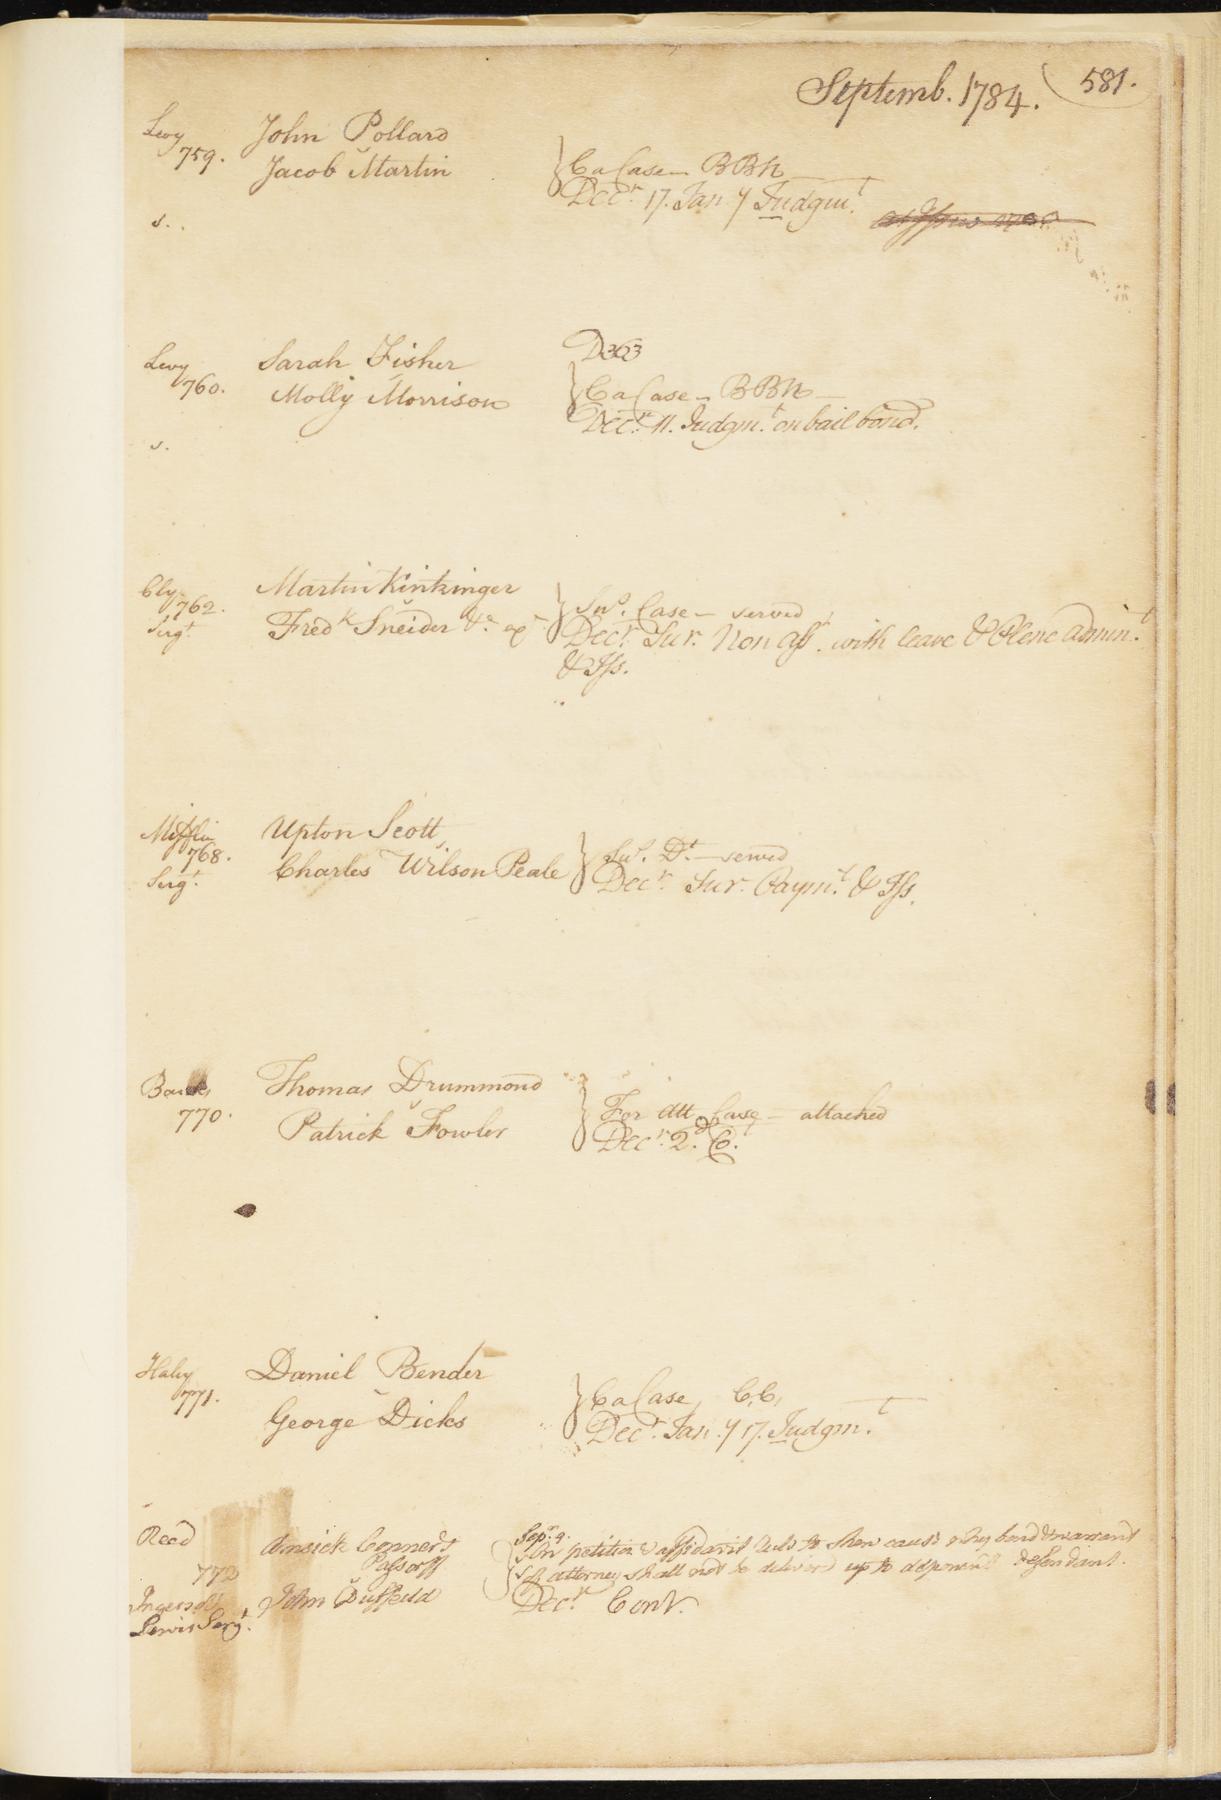 Septemb. 1784. 581.
Levy John Pollard
759. v Jacob Martin } Ca Case — BBh
Decr. 17. Jan. 7 Judgmt.
s.
Levy Sarah Fisher D363
760. v Molly Morrison } Ca Case — BBh —
Decr. 11. Judgmt. on bail bond.
s.
Cly. Martin Kintzinger
762. v Fredk Sneider &c exr } Sus. Case — served
Sergt. Decr. Sur. Non Ass. with leave &c Plene Admint.
& Iss.
Mifflin Upton Scott
768. v Charles Wilson Peale } Sus. Dt. — served
Sergt. Decr. Sur. Paymt. & Iss.
Banks Thomas Drummond
770. v Patrick Fowler } For Att. Case — attached
Decr. 2d. Ct.
Haly Daniel Bender
771. v George Dicks } Ca Case, C.C.
Decr. Jan. 7 17. Judgmt.
Reed Conners Sepr. 9.
On petition & affidavit Rule to shew cause why bond & warrant
772 of attorney shall not be delivered up to defendant.
Ingersoll John Duffield Decr. Cont.
Lewis Sergt.